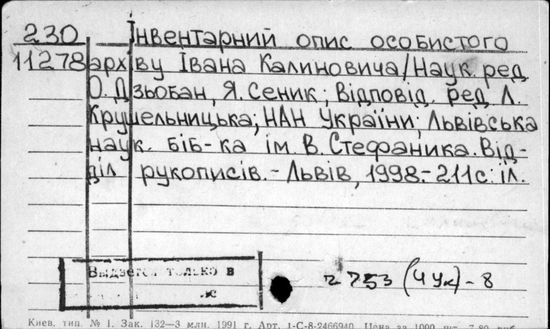 230 Інвентарний опис особистого
11278 архіву Івана Калиновича/Наук. ред.
О. Дзьобан, Я. Сеник; Відповід. ред. Л.
Крушельницька; НАН України; Львівська
наук. біб-ка ім. В. Стефаника. Від-
діл рукописів. - Львів, 1998.- 211с.: іл.
Выдается только в
2753 (4Ук)-8
Киев. тип. № 1. Зак. 132—3 млн. 1991 г. Арт. 1-С-8-2466940. Цена за 1000 шт. 7-80 руб.